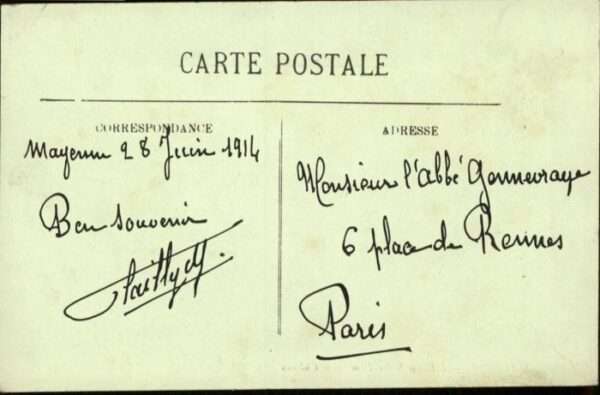 CARTE POSTALE
CORRESPONDANCE
Mayenne 28 Juin 1914
Bon souvenir
ADRESSE
Monsieur l'Abbé Gonnevraye
6 place de Rennes
Paris